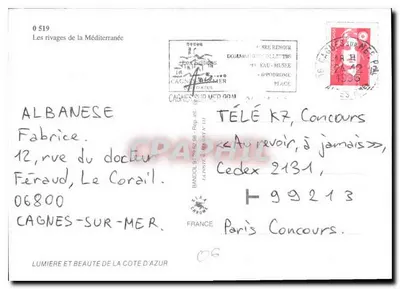 0 519
Les rivages de la Méditerranée
CAGNES-SUR-MER
ALBANESE
Fabrice.
12, rue du docteur
Féraud, Le Corail.
06800
CAGNES-SUR-MER.
TÉLÉ K7, Concours
«Au revoir, à jamais»,
Cedex 2131,
99213
Paris Concours.
FRANCE
LUMIERE ET BEAUTE DE LA COTE D'AZUR